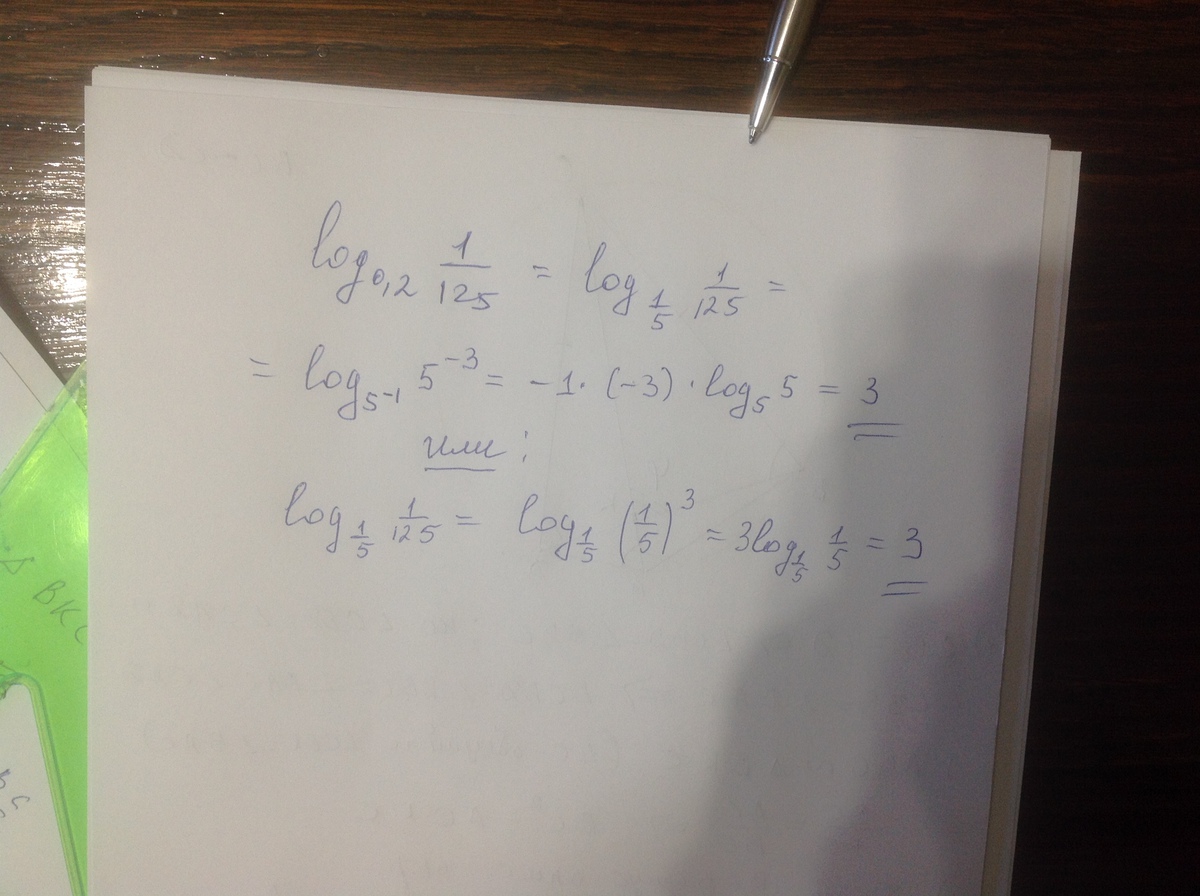 log₀,₂ 1/125 = log₁/₅ 1/125 =
= log₅₋₁ 5⁻³ = -1 · (-3) · log₅ 5 = 3
или:
log₁/₅ 1/125 = log₁/₅ (1/5)³ = 3log₁/₅ 1/5 = 3
ВКС